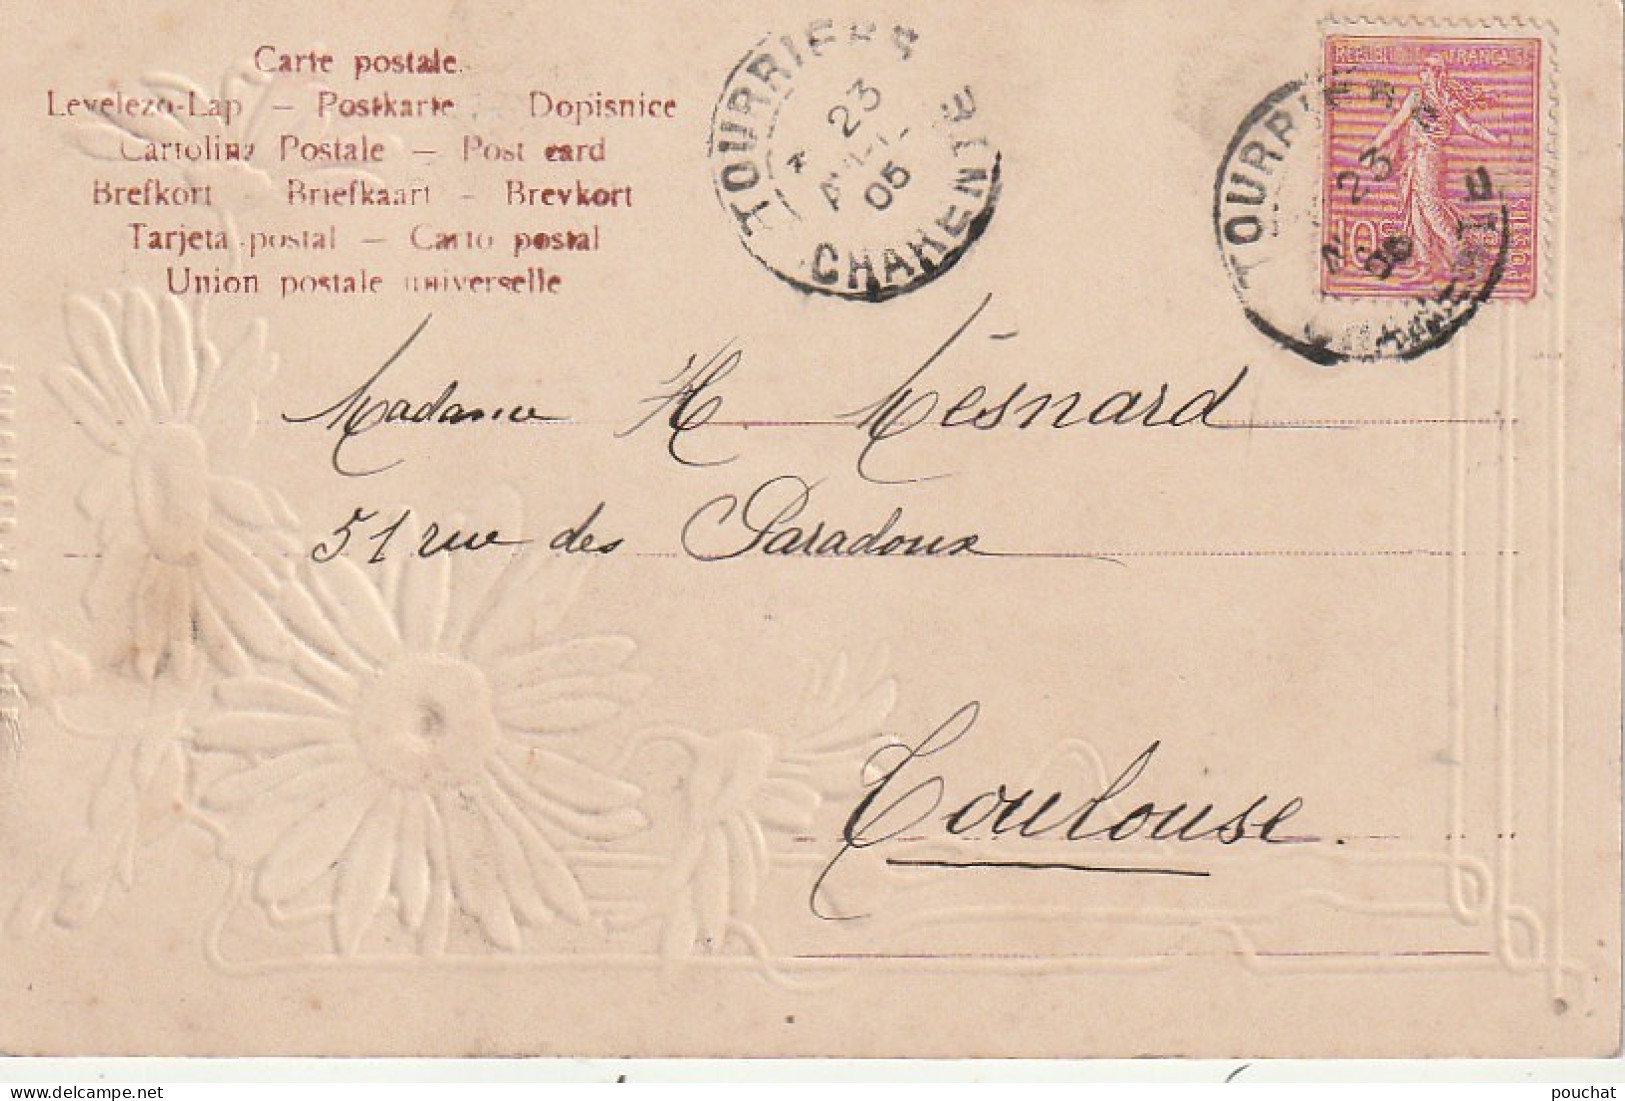 Carte postale.
Levelezo-Lap – Postkarte – Dopisnice
Cartolina Postale – Post card
Brefkort – Briefkaart – Brevkort
Tarjeta postal – Carto postal
Union postale universelle
TOURRIERS
23
05
CHARENTE
REPUBLIQUE FRANÇAISE
10c
POSTES
TOURRIERS
23
Madame H. Mésnard
51 rue des Paradoux
Toulouse.
pouchat